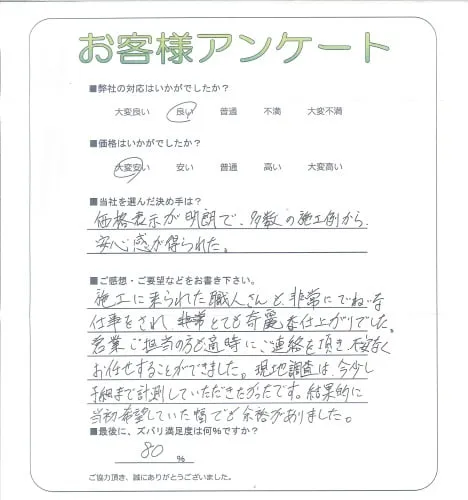 お客様アンケート
■弊社の対応はいかがでしたか?
大変良い 良い 普通 不満 大変不満
■価格はいかがでしたか?
大変安い 安い 普通 高い 大変高い
■当社を選んだ決め手は?
価格表示が明朗で、多数の施工例から、
安心感が得られた。
■ご感想・ご要望などをお書き下さい。
施工に来られた職人さんも非常にていねいな
仕事をされ、とても奇麗な仕上がりでした。
営業ご担当の方も適時にご連絡を頂き、不安なく
お任せすることができました。現地調査は、今少し
手細まで計測していただきたかったです。結果的に
当初希望していた幅でも余裕がありました。
■最後に、ズバリ満足度は何%ですか?
80 %
ご協力頂き、誠にありがとうございました。